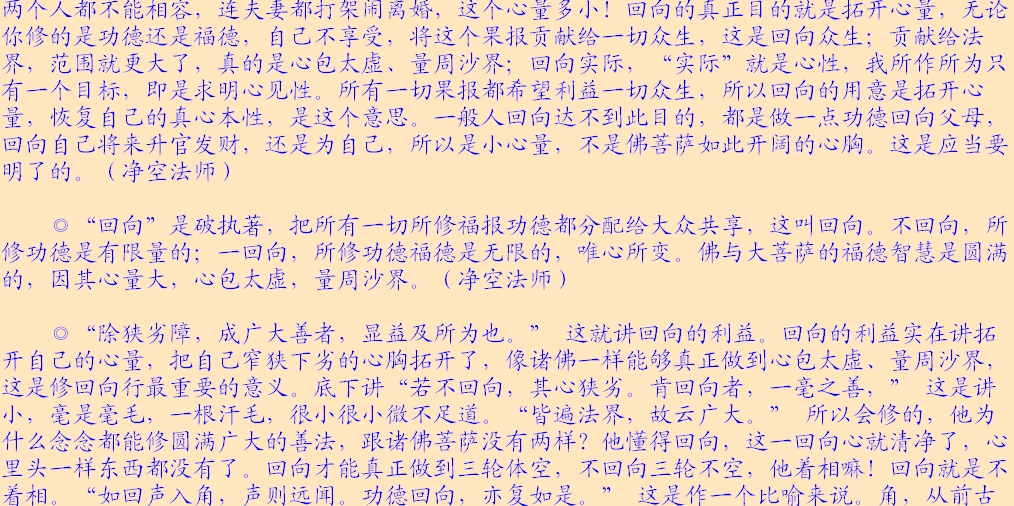 两个人都不能相容，连夫妻都打架闹离婚，这个心量多小！回向的真正目的就是拓开心量，无论
你修的是功德还是福德，自己不享受，将这个果报贡献给一切众生，这是回向众生；贡献给法
界，范围就更大了，真的是心包太虚、量周沙界；回向实际，“实际”就是心性，我所作所为只
有一个目标，即是求明心见性。所有一切果报都希望利益一切众生，所以回向的用意是拓开心
量，恢复自己的真心本性，是这个意思。一般人回向达不到此目的，都是做一点功德回向父母，
回向自己将来升官发财，还是为自己，所以是小心量，不是佛菩萨如此开阔的心胸。这是应当要
明了的。（净空法师）
◎“回向”是破执著，把所有一切所修福报功德都分配给大众共享，这叫回向。不回向，所
修功德是有限量的；一回向，所修功德福德是无限的，唯心所变。佛与大菩萨的福德智慧是圆满
的，因其心量大，心包太虚，量周沙界。（净空法师）
◎“除狭劣障，成广大善者，显益及所为也。” 这就讲回向的利益。回向的利益实在讲拓
开自己的心量，把自己窄狭下劣的心胸拓开了，像诸佛一样能够真正做到心包太虚、量周沙界，
这是修回向行最重要的意义。底下讲“若不回向，其心狭劣。肯回向者，一毫之善，” 这是讲
小，毫是毫毛，一根汗毛，很小很小微不足道。“皆遍法界，故云广大。” 所以会修的，他为
什么念念都能修圆满广大的善法，跟诸佛菩萨没有两样？他懂得回向，这一回向心就清净了，心
里头一样东西都没有了。回向才能真正做到三轮体空，不回向三轮不空，他着相嘛！回向就是不
着相。“如回声入角，声则远闻。功德回向，亦复如是。” 这是作一个比喻来说。角，从前古